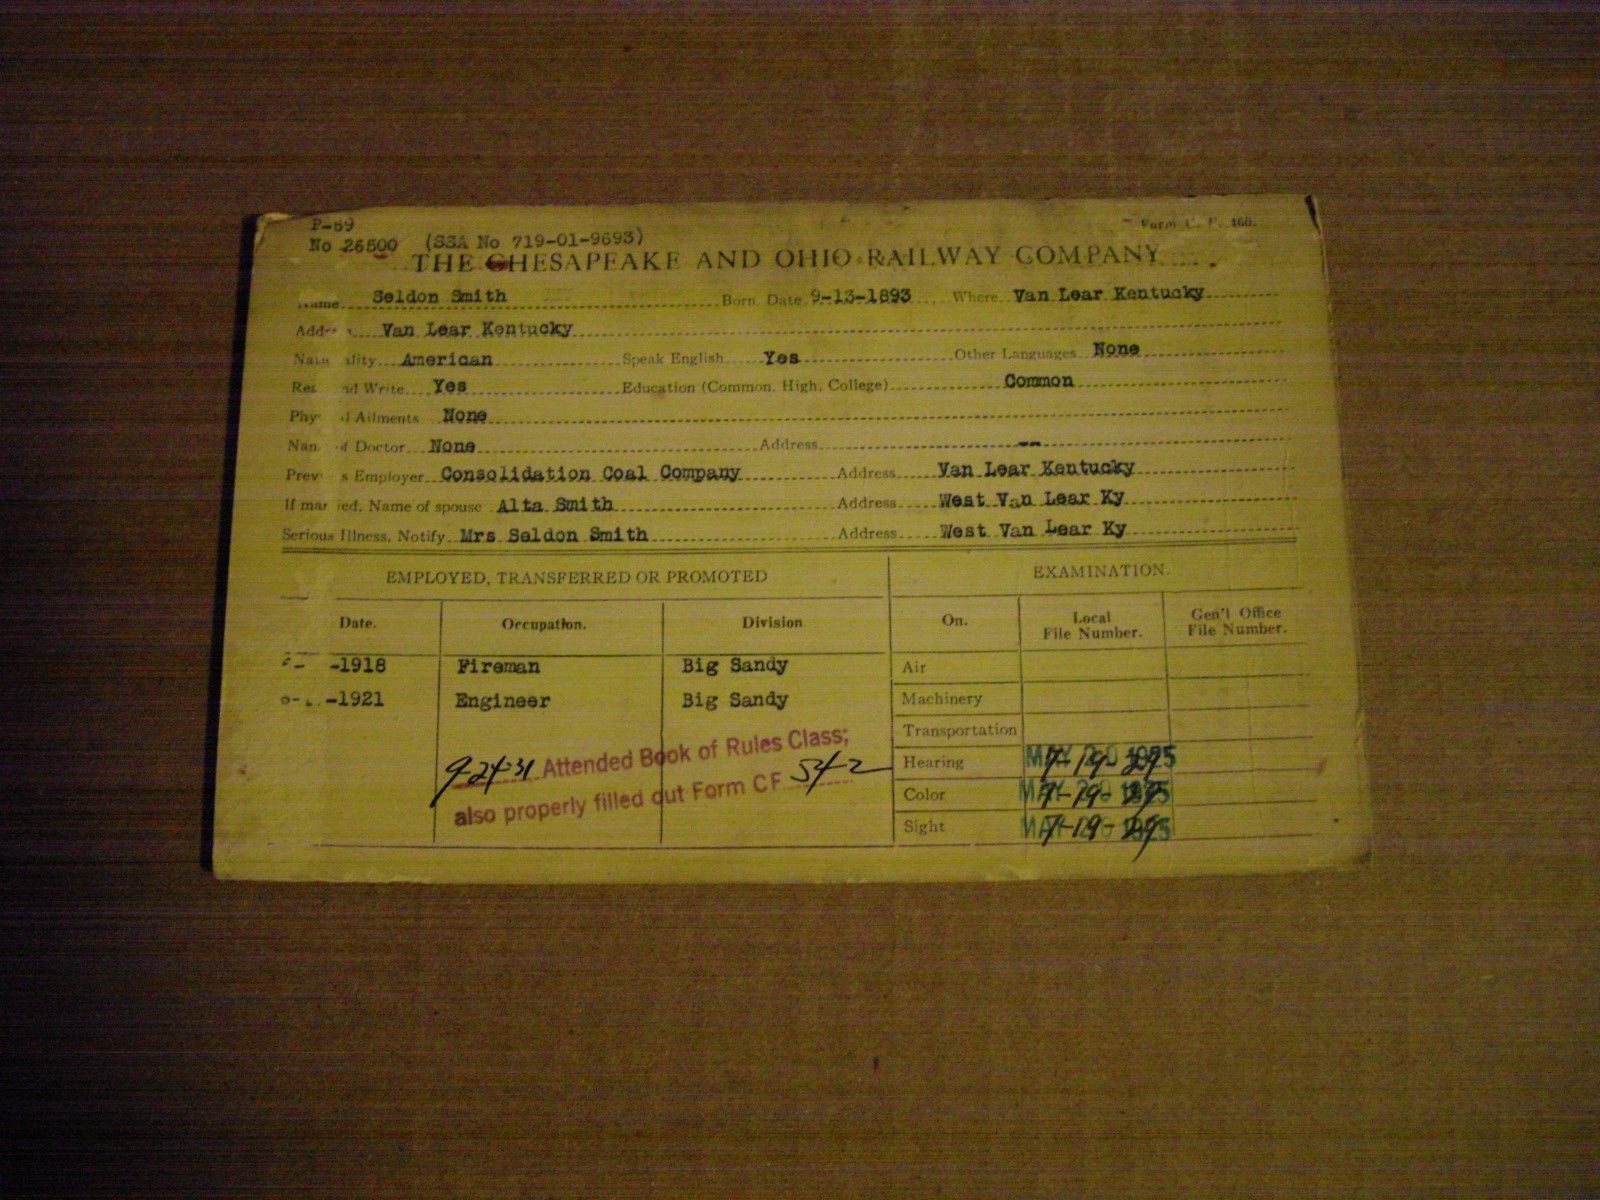 P-59
No 26500 (SSA No 719-01-9693) Form C. P. 160.
THE CHESAPEAKE AND OHIO RAILWAY COMPANY
Name Seldon Smith Born Date 9-13-1893 Where Van Lear Kentucky
Van Lear Kentucky
American Speak English Yes Other Languages None
Write Yes Education (Common, High, College) Common
Ailments None
of Doctor None Address --
Employer Consolidation Coal Company Address Van Lear Kentucky
If married, Name of spouse Alta Smith Address West Van Lear Ky
Serious Illness, Notify Mrs Seldon Smith Address West Van Lear Ky
EMPLOYED, TRANSFERRED OR PROMOTED EXAMINATION.
Date. Occupation. Division On. Local File Number. Gen'l Office File Number.
-1918 Fireman Big Sandy Air
-1921 Engineer Big Sandy Machinery
Transportation
9-24-31 Attended Book of Rules Class; Hearing
also properly filled out Form CF 54-2 Color
Sight